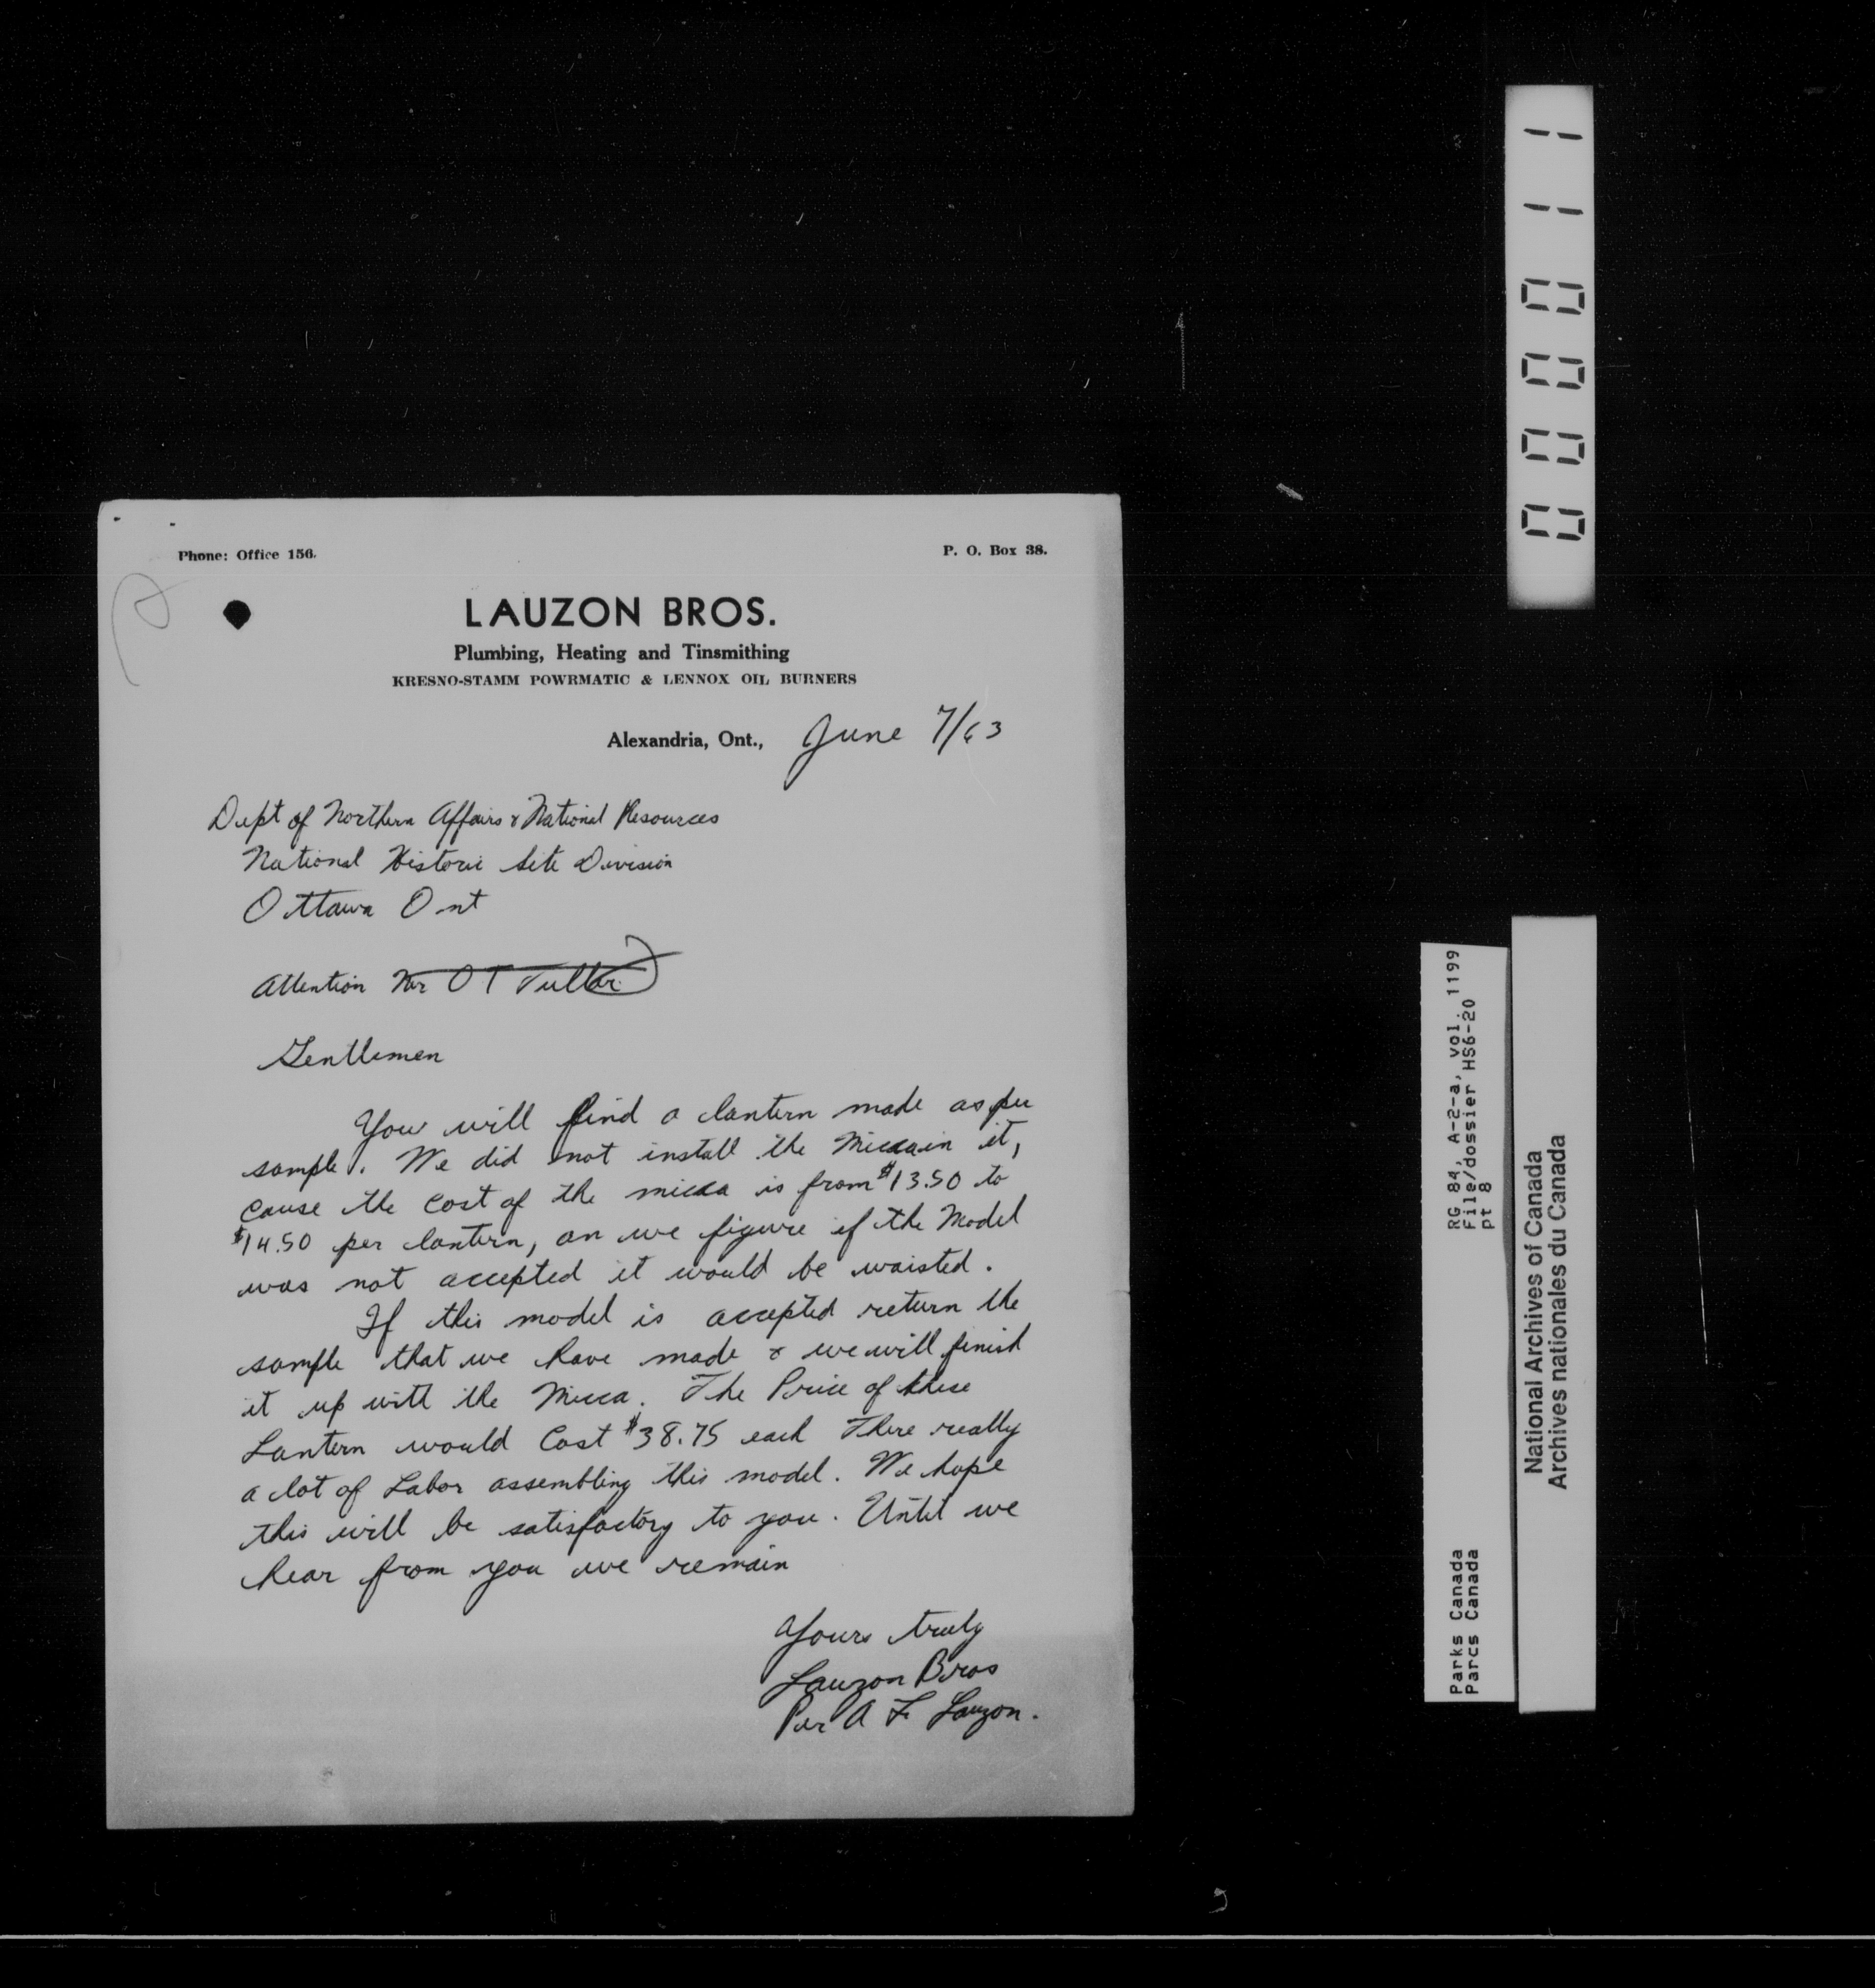 Phone: Office 156.
P. O. Box 38.
LAUZON BROS.
Plumbing, Heating and Tinsmithing
KRESNO-STAMM POWRMATIC & LENNOX OIL BURNERS
Alexandria, Ont., June 7/63
Dept of Northern Affairs & National Resources
National Historic Site Division
Ottawa Ont
Attention Mr O T Fuller
Gentlemen
You will find a lantern made as per
sample. We did not install the Micca in it,
cause the cost of the micca is from $13.50 to
$14.50 per lantern, an we figure if the Model
was not accepted it would be waisted.
If this model is accepted return the
sample that we have made & we will finish
it up with the Micca. The Price of these
Lantern would Cost $38.75 each There really
a lot of Labor assembling this model. We hope
this will be satisfactory to you. Until we
hear from you we remain
Yours truly
Lauzon Bros
Per A F Lauzon.
000011
RG 84, A-2-a, vol. 1199
File/dossier HS6-20
pt 8
Parks Canada
Parcs Canada
National Archives of Canada
Archives nationales du Canada